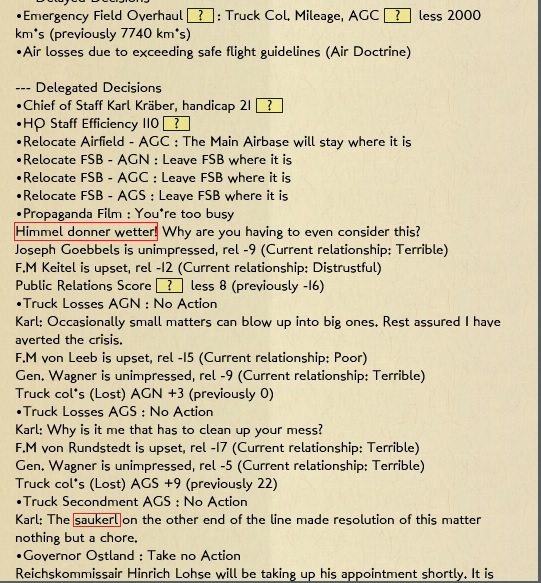 •Emergency Field Overhaul ? : Truck Col. Mileage, AGC ? less 2000
km's (previously 7740 km's)
•Air losses due to exceeding safe flight guidelines (Air Doctrine)
--- Delegated Decisions
•Chief of Staff Karl Kräber, handicap 21 ?
•HQ Staff Efficiency 110 ?
•Relocate Airfield - AGC : The Main Airbase will stay where it is
•Relocate FSB - AGN : Leave FSB where it is
•Relocate FSB - AGC : Leave FSB where it is
•Relocate FSB - AGS : Leave FSB where it is
•Propaganda Film : You're too busy
Himmel donner wetter! Why are you having to even consider this?
Joseph Goebbels is unimpressed, rel -9 (Current relationship: Terrible)
F.M Keitel is upset, rel -12 (Current relationship: Distrustful)
Public Relations Score ? less 8 (previously -16)
•Truck Losses AGN : No Action
Karl: Occasionally small matters can blow up into big ones. Rest assured I have
averted the crisis.
F.M von Leeb is upset, rel -15 (Current relationship: Poor)
Gen. Wagner is unimpressed, rel -9 (Current relationship: Terrible)
Truck col's (Lost) AGN +3 (previously 0)
•Truck Losses AGS : No Action
Karl: Why is it me that has to clean up your mess?
F.M von Rundstedt is upset, rel -17 (Current relationship: Terrible)
Gen. Wagner is unimpressed, rel -5 (Current relationship: Terrible)
Truck col's (Lost) AGS +9 (previously 22)
•Truck Secondment AGS : No Action
Karl: The saukerl on the other end of the line made resolution of this matter
nothing but a chore.
•Governor Ostland : Take no Action
Reichskommissair Hinrich Lohse will be taking up his appointment shortly. It is